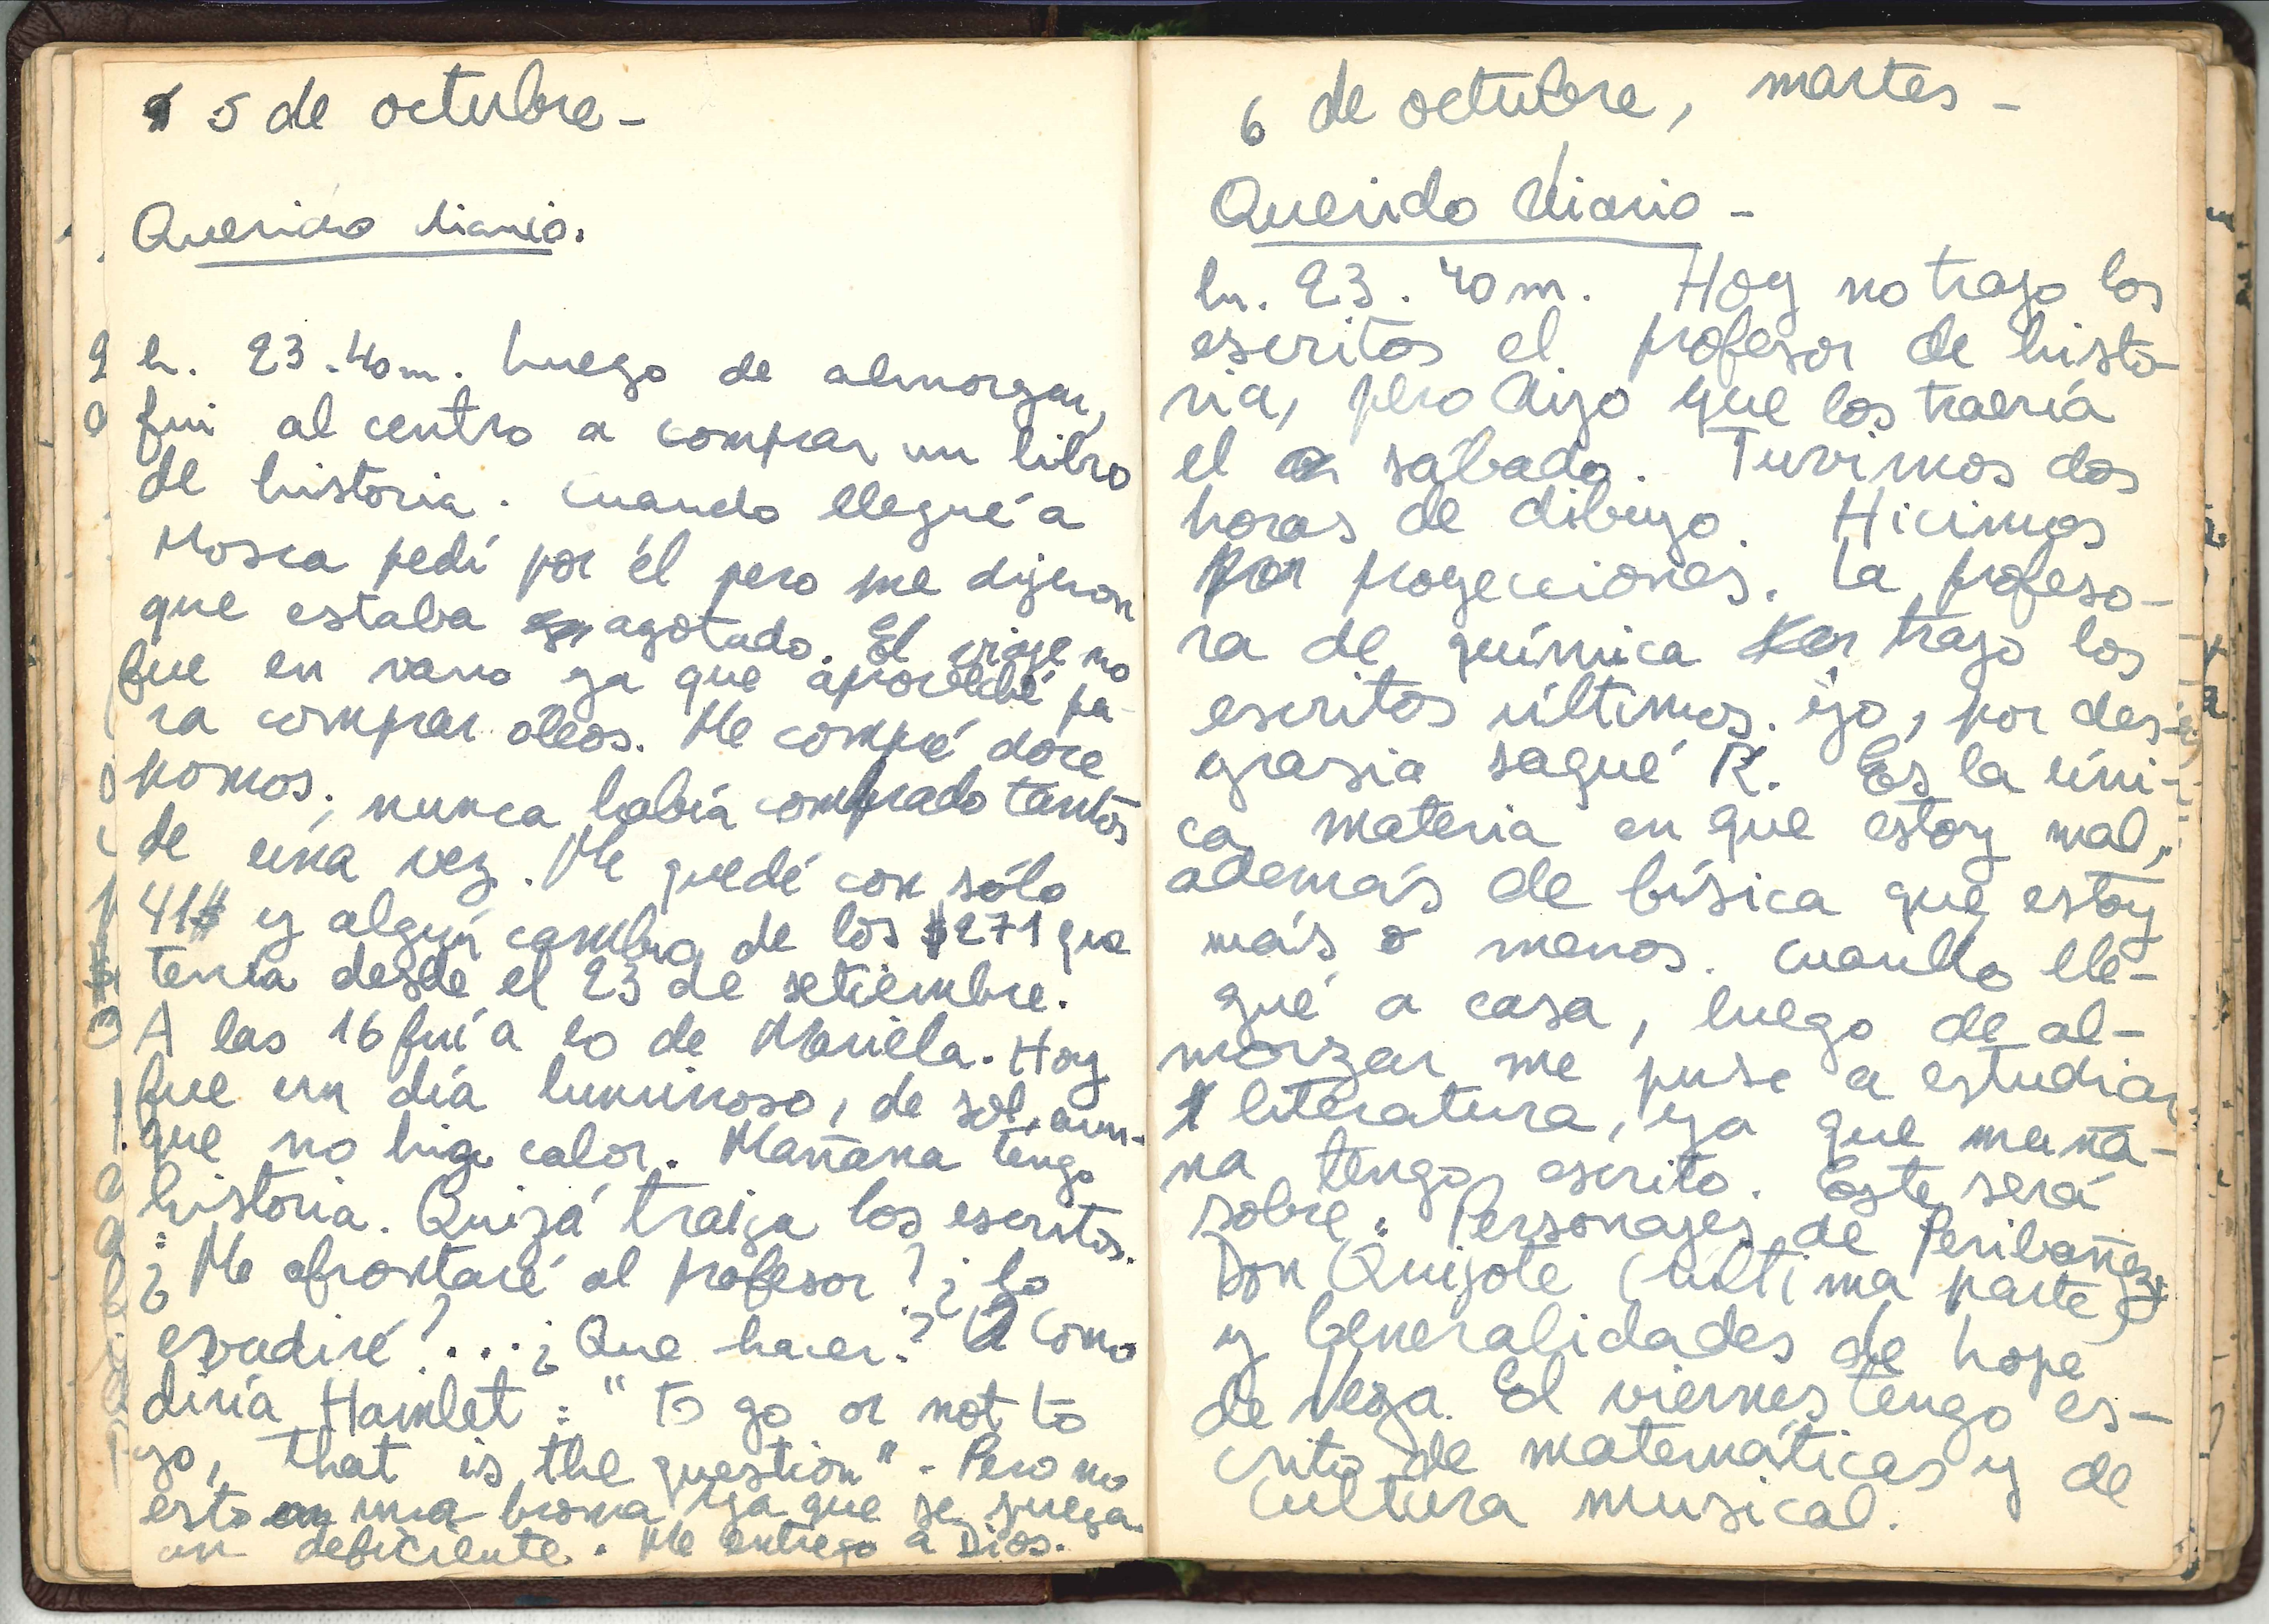 5 de octubre -
Querido diario.
h. 23.40m. Luego de almorzar,
fui al centro a comprar un libro
de historia. Cuando llegué a
Mosca pedí por él pero me dijeron
que estaba agotado. El viaje no
fue en vano ya que aproveché pa-
ra comprar oleos. Me compré doce
pomos; nunca había comprado tantos
de una vez. Me quedé con sólo
41$ y algún cambio de los $271 que
tenía desde el 23 de setiembre.
A las 16 fuí a lo de Mariela. Hoy
fue un día luminoso, de sol, aun-
que no hizo calor. Mañana tengo
historia. Quizá traiga los escritos.
¿Me afrontaré al profesor? ¿Lo
evadiré?... ¿Que hacer? Como
diría Hamlet: "To go or not to
go, that is the question". Pero no
esto una broma ya que se juega
un deficiente. Me entrego a Dios.
6 de octubre, martes -
Querido diario -
h. 23.40m. Hoy no trajo los
escritos el profesor de histo-
ria, pero dijo que los traería
el sábado. Tuvimos dos
horas de dibujo. Hicimos
proyecciones. La profeso-
ra de química trajo los
escritos últimos. yo, por des-
grasia saqué R. Es la úni-
ca materia en que estoy mal,
además de física que estoy
más o menos. Cuando lle-
gué a casa, luego de al-
morzar me puse a estudiar
literatura, ya que maña-
na tengo escrito. Este será
sobre: Personajes de Peribañez;
Don Quijote (última parte)
y Generalidades de Lope
de Vega. El viernes tengo es-
crito de matemáticas y de
cultura musical.